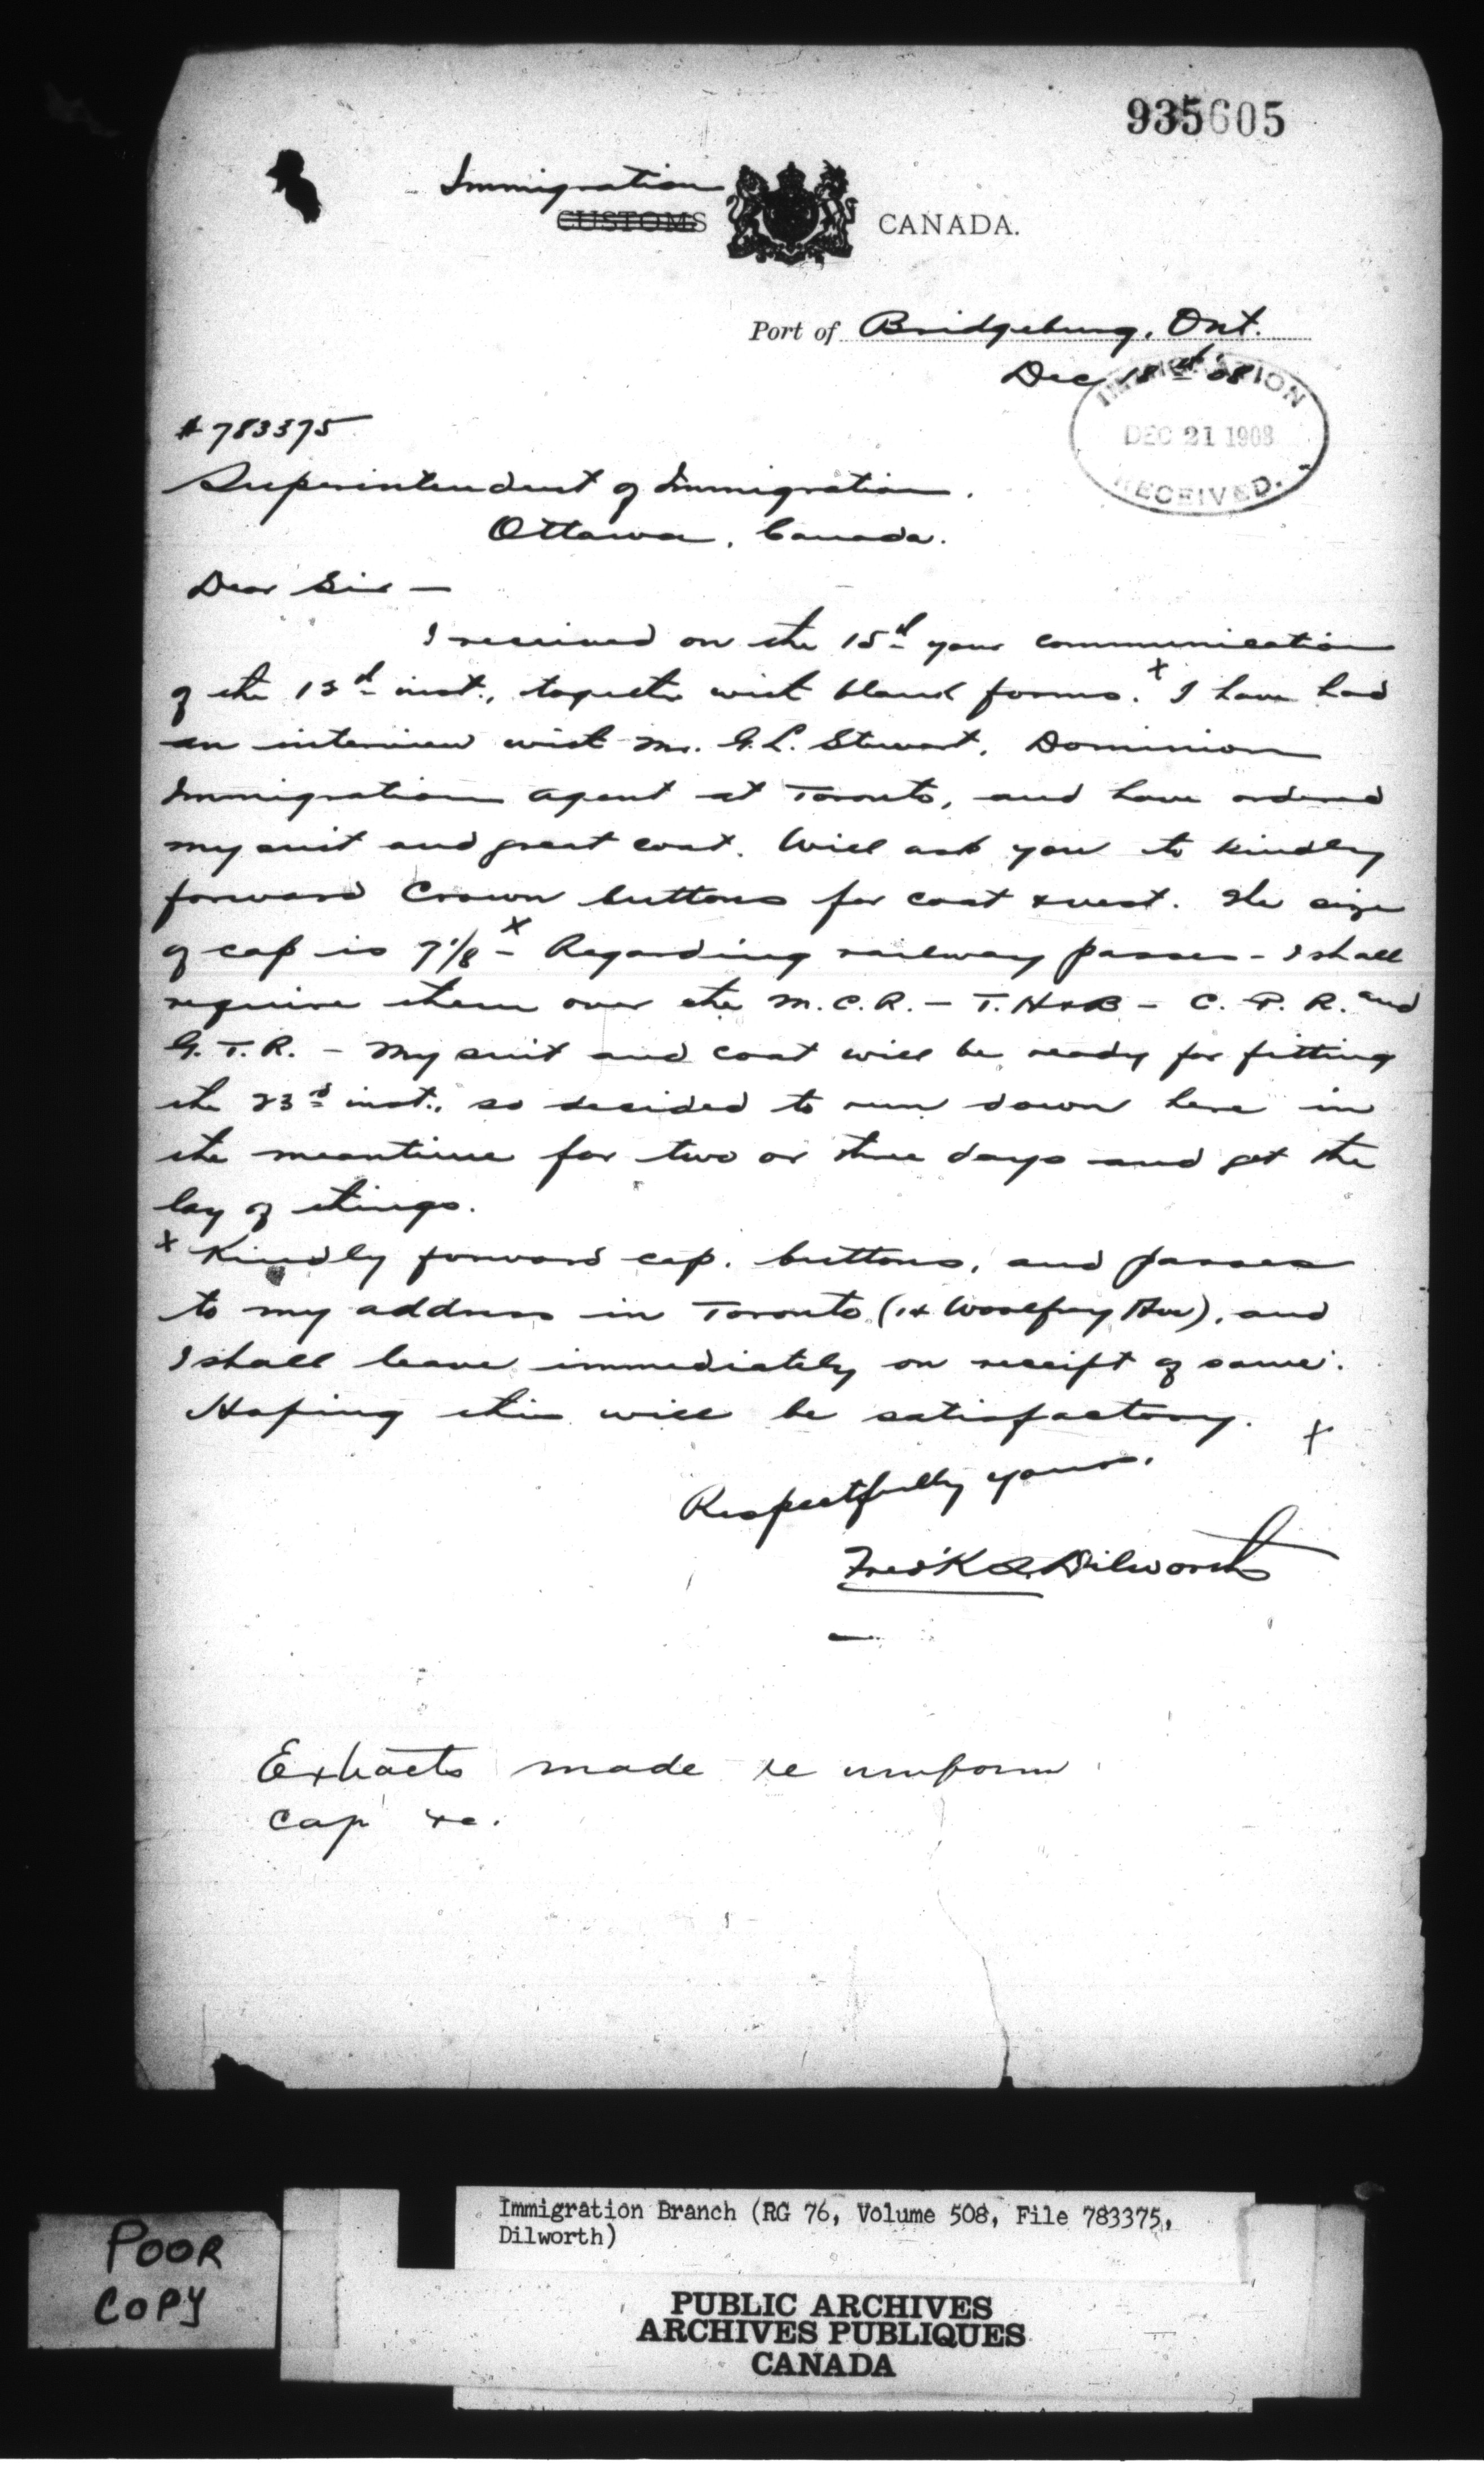 935605
Immigration
CUSTOMS CANADA.
Port of Bridgeburg, Ont.
Dec 18th 08
IMMIGRATION
DEC 21 1908
RECEIVED.
# 783375
Superintendent of Immigration.
Ottawa, Canada.
Dear Sir —
I received on the 15th your communication
of the 13th inst., together with blank forms. x I have had
an interview with Mr. G. L. Stewart, Dominion
Immigration agent at Toronto, and have ordered
my suit and great coat. Will ask you to kindly
forward Crown buttons for coat & vest. The size
of cap is 7 1/8 x – Regarding railway passes – I shall
require them over the M.C.R. – T. H & B – C. P. R. and
G. T. R. – My suit and coat will be ready for fitting
the 23rd inst., so decided to run down here in
the meantime for two or three days and get the
lay of things.
x Kindly forward cap, buttons, and passes
to my address in Toronto (14 Woolfrey Ave), and
I shall leave immediately on receipt of same.
Hoping this will be satisfactory. x
Respectfully yours,
Fred'K Dilworth
Extracts made re uniform
cap &c.
POOR
COPY
Immigration Branch (RG 76, Volume 508, File 783375,
Dilworth)
PUBLIC ARCHIVES
ARCHIVES PUBLIQUES
CANADA